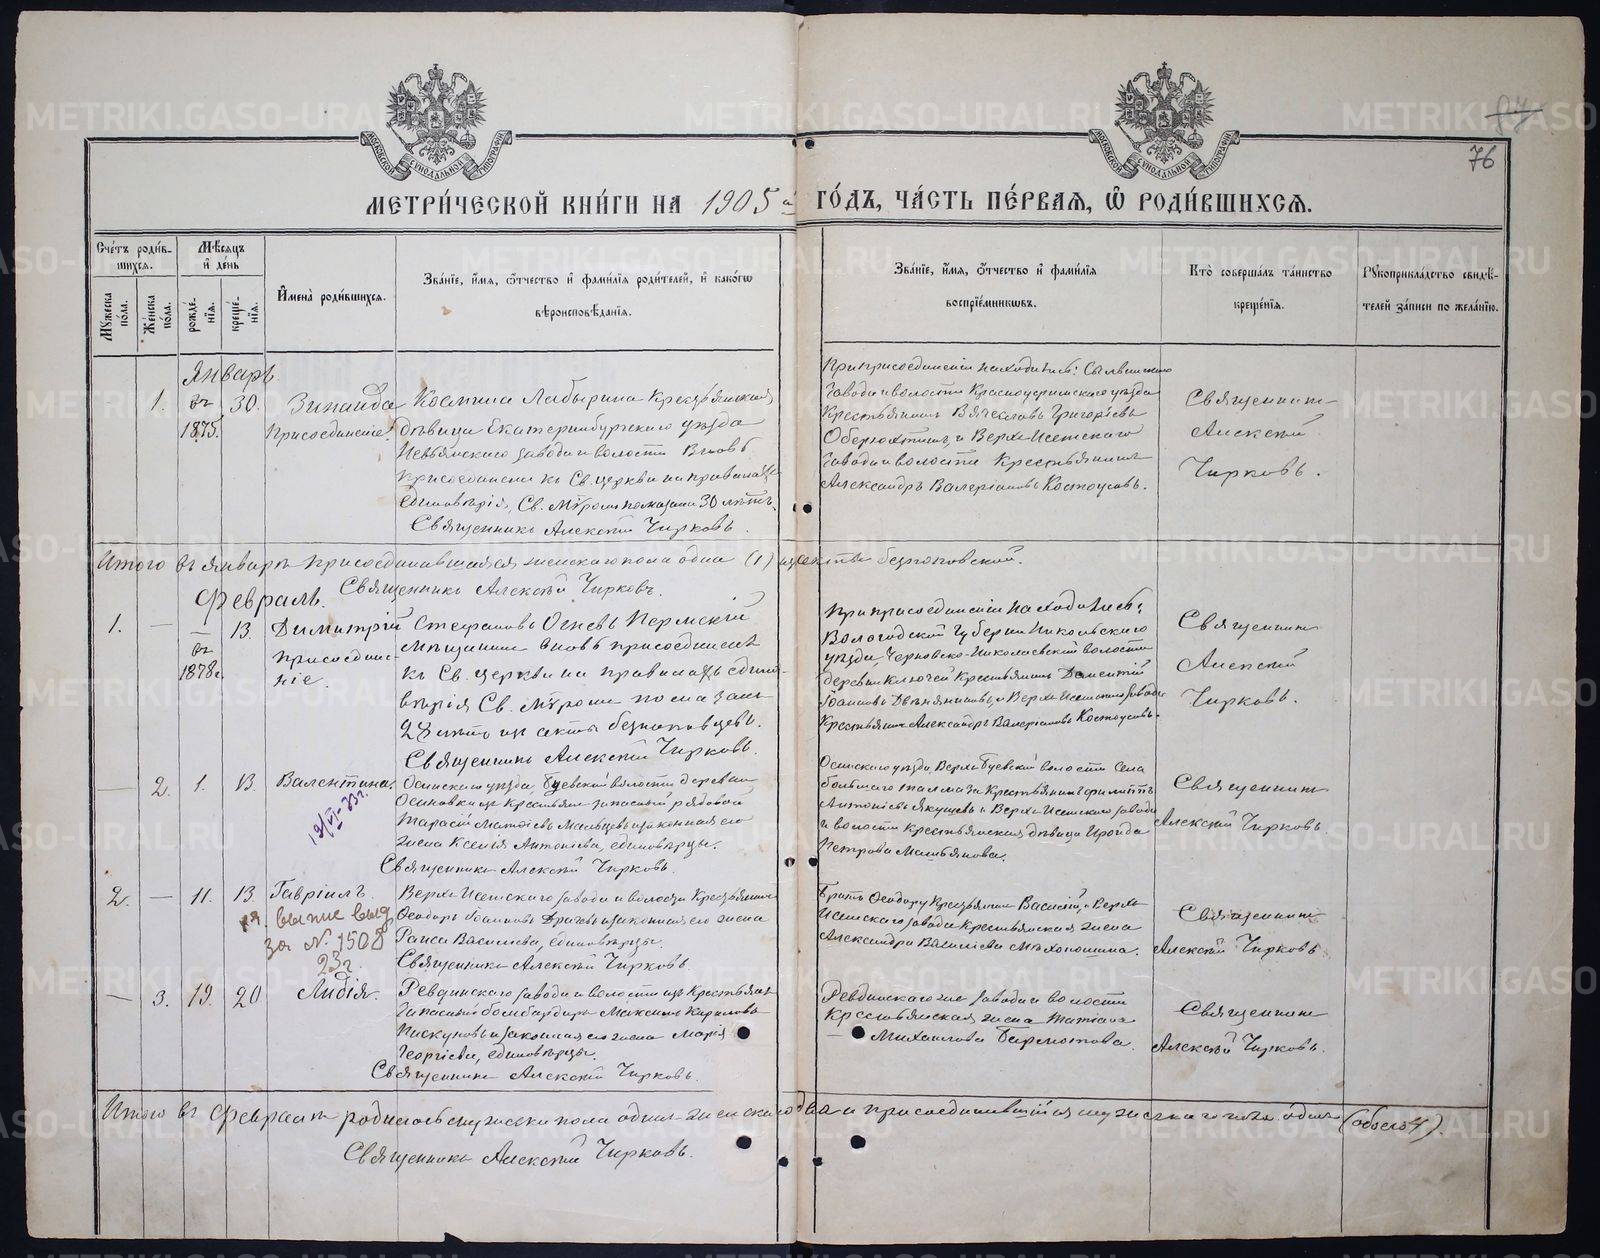 84
76
МЕТРИ́ЧЕСКОЙ КНИ́ГИ НА 1905й ГО́ДЪ, ЧА́СТЬ ПЕ́РВАѦ, Ѽ РОДИ́ВШИХСѦ.
Сче́тъ роди́вшихсѧ.
Мꙋ́жеска по́ла.
Же́нска по́ла.
Мѣ́сѧцъ и҆ де́нь
рожде́нїѧ.
креще́нїѧ.
И҆мена̀ роди́вшихсѧ.
Зва́нїе, и҆́мѧ, ѻ҆́тчество и҆ фами́лїѧ роди́телей, и҆ како́гѡ вѣроисповѣ́данїѧ.
Зва́нїе, и҆́мѧ, ѻ҆́тчество и҆ фами́лїѧ воспрїе́мникѡвъ.
Кто̀ соверша́лъ та́инство креще́нїѧ.
Рꙋкоприкла́дство свидѣ́телей за́писи по жела́нїю.
Январь
1. въ 1875. 30. Зинаида
Присоединеніе.
Космина Лабырина Крестьянская
дѣвица Екатеринбургскаго уѣзда
Невьянскаго завода и волости Вновь
присоединена къ Св. церкви на правилахъ
единовѣрія, Св. Мѵромъ помазана 30 лѣтъ.
Священникъ Алексѣй Чирковъ.
При присоединеніи находились: Сылвинскаго
Завода и волости Красноуфимскаго уѣзда
Крестьянинъ Вячеславъ Григорьевъ
и Верхъ-Исетскаго
Завода и волости Крестьянинъ
Александръ Валеріановъ Костоусовъ.
Священникъ
Алексѣй
Чирковъ.
Итого въ январѣ присоединившаяся женскаго пола одна (1) изъ секты безпоповской.
Священникъ Алексѣй Чирковъ.
Февраль.
1. — — въ 1878г. 13. Димитрій
присоединеніе.
Стефановъ Огневъ Пермскій
мѣщанинъ вновь присоединенъ
къ Св. церкви на правилахъ едино-
вѣрія Св. Мѵромъ помазанъ
28 лѣтъ изъ секты безпоповцевъ.
Священникъ Алексѣй Чирковъ.
При присоединеніи находились:
Вологодской Губерніи Никольскаго
уѣзда, Черновско-Николаевской волости
деревни Ключей Крестьянинъ Дементій
Іоанновъ и Верхъ-Исетскаго завода
Крестьянинъ Александръ Валеріановъ Костоусовъ.
Священникъ
Алексѣй
Чирковъ.
— 2. 1. 13. Валентина.
19/VI-23г.
Осинскаго уѣзда, Буевской волости деревни
Осиновки изъ крестьянъ запасный рядовой
Тарасій Матѳіевъ Мальцевъ и законная его
жена Ксенія Антоніева, единовѣрцы.
Священникъ Алексѣй Чирковъ.
Осинскаго уѣзда, Верхъ-Буевской волости Села
большаго Талмаза Крестьянинъ Филиппъ
Антоніевъ Якушевъ и Верхъ-Исетскаго завода
и волости Крестьянская дѣвица Ираида
Петрова
Священникъ
Алексѣй Чирковъ
2. — 11. 13. Гавріилъ
выпис выд
за № 1508
23г.
Верхъ-Исетскаго завода и волости Крестьянинъ
Ѳеодоръ Іоанновъ и законная его жена
Раиса Васильева, единовѣрцы.
Священникъ Алексѣй Чирковъ.
Братъ Ѳеодору Крестьянинъ Василій, и Верхъ-
Исетскаго завода Крестьянская жена
Александра Василіева Мѣхоношина.
Священникъ
Алексѣй Чирковъ
— 3. 19. 20 Лидія.
Ревдинскаго завода и волости изъ Крестьянъ
Запасный бомбардиръ Максимъ Кириловъ
Пискуновъ и законная его жена Марія
Георгіева, единовѣрцы.
Священникъ Алексѣй Чирковъ.
Ревдинскаго же завода и волости
Крестьянская жена Татіана
Михаилова
Священникъ
Алексѣй Чирковъ.
Итого въ Февралѣ родилось мужеска пола одинъ женскаго два и присоединившійся мужескаго пола одинъ (обоего 4).
Священникъ Алексѣй Чирковъ.
METRIKI.GASO-URAL.RU